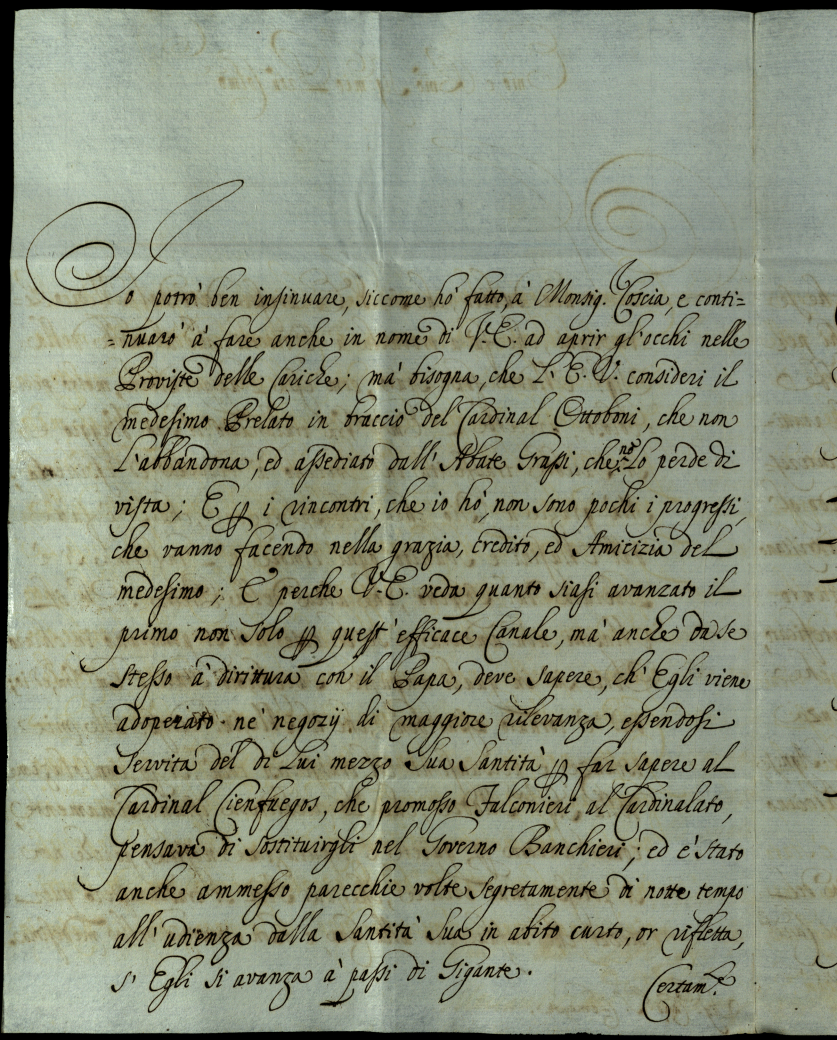 Io potrò ben insinuare, siccome hò fatto, à Monsig. Coscia, e conti=
=nuarò à fare anche in nome di V. E. ad aprir gl'occhi nelle
Proviste delle Cariche; mà bisogna, che L'E. V. consideri il
medesimo Prelato in braccio del Cardinal Ottoboni, che non
L'abbandona, ed assediato dall'Abate Grassi, che no Lo perde di
vista; E p i rincontri, che io hò, non sono pochi i progressi,
che vanno facendo nella grazia, credito, ed Amicizia del
medesimo; E perche V. E. veda quanto siasi avanzato il
primo non solo p quest'efficace Canale, mà anche da se
stesso à dirittura con il Papa, deve sapere, ch'Egli viene
adoperato ne' negozij di maggiore rilevanza, essendosi
servita del di Lui mezzo Sua Santità p far sapere al
Cardinal Cienfuegos, che promosso Falconieri al Cardinalato,
pensava di sostituirgli nel Governo Banchieri; ed è stato
anche ammesso parecchie volte segretamente di notte tempo
all'udienza dalla Santità Sua in abito curto, or rifletta,
s'Egli si avanza à passi di Gigante.
Certam.e